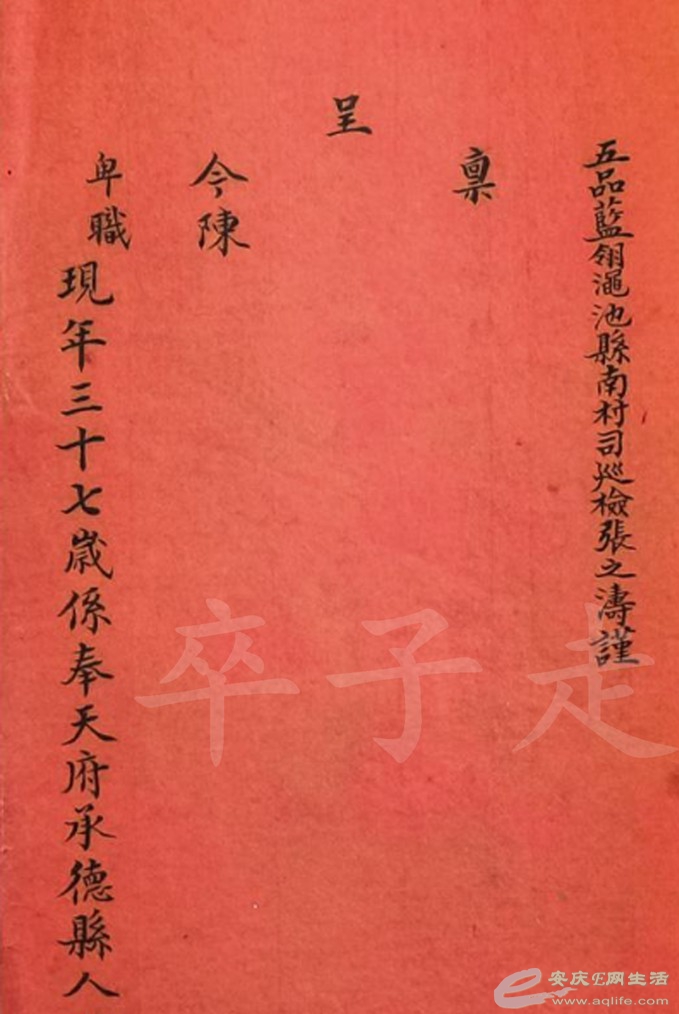 五品藍翎澠池縣南村司巡檢張之濤謹
稟
呈
今陳
卑職
現年三十七歲係奉天府承德縣人
走子卒
安庆E网生活
www.aqlife.com